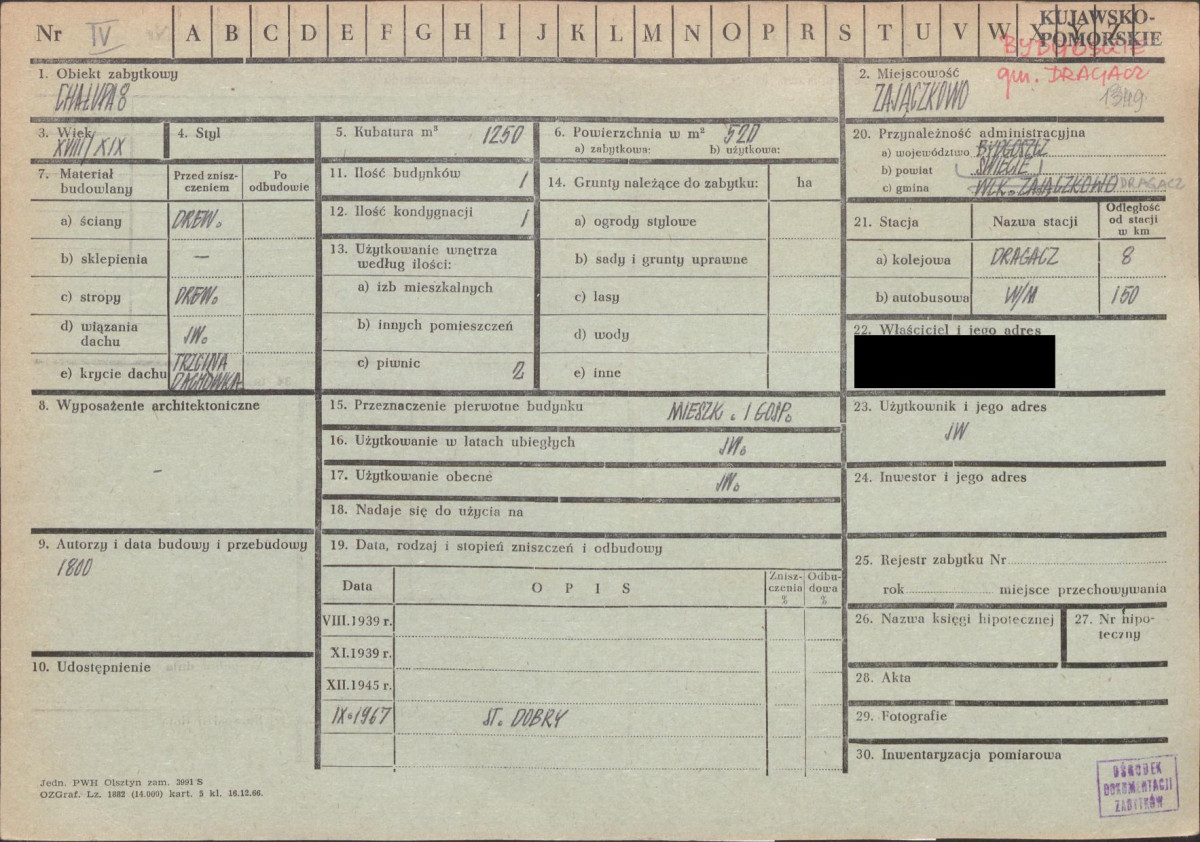 Nr IV A B C D E F G H I J K L M N O P R S T U V W X Y Z
KUJAWSKO-
POMORSKIE
BYDGOSKIE
gm. DRAGACZ
1349
1. Obiekt zabytkowy
CHAŁUPA 8
2. Miejscowość
ZAJĄCZKOWO
3. Wiek
XVIII/XIX
4. Styl
5. Kubatura m³ 1250
6. Powierzchnia w m² 520
a) zabytkowa: b) użytkowa:
7. Materiał
budowlany
Przed znisz-
czeniem
Po
odbudowie
a) ściany DREW.
b) sklepienia —
c) stropy DREW.
d) wiązania
dachu JW.
e) krycie dachu TRZCINA
DACHÓWKA
8. Wyposażenie architektoniczne
–
9. Autorzy i data budowy i przebudowy
1800
10. Udostępnienie
11. Ilość budynków 1
12. Ilość kondygnacji 1
13. Użytkowanie wnętrza
według ilości:
a) izb mieszkalnych
b) innych pomieszczeń
c) piwnic 2
14. Grunty należące do zabytku: ha
a) ogrody stylowe
b) sady i grunty uprawne
c) lasy
d) wody
e) inne
15. Przeznaczenie pierwotne budynku MIESZK. I GOSP.
16. Użytkowanie w latach ubiegłych JW.
17. Użytkowanie obecne JW.
18. Nadaje się do użycia na
19. Data, rodzaj i stopień zniszczeń i odbudowy
Data OPIS Znisz-
czenia
% Odbu-
dowa
%
VIII.1939 r.
XI.1939 r.
XII.1945 r.
IX.1967 ST. DOBRY
20. Przynależność administracyjna
a) województwo BYDGOSZCZ
b) powiat ŚWIECIE
c) gmina WLK. ZAJĄCZKOWO DRAGACZ
21. Stacja Nazwa stacji Odległość
od stacji
w km
a) kolejowa DRAGACZ 8
b) autobusowa W/M 150
22. Właściciel i jego adres
23. Użytkownik i jego adres
JW
24. Inwestor i jego adres
25. Rejestr zabytku Nr
rok miejsce przechowywania
26. Nazwa księgi hipotecznej
27. Nr hipo-
teczny
28. Akta
29. Fotografie
30. Inwentaryzacja pomiarowa
OŚRODEK
DOKUMENTACJI
ZABYTKÓW
Jedn. PWH Olsztyn zam. 3991 S
OZGraf. Lz. 1882 (14.000) kart. 5 kl. 16.12.66.